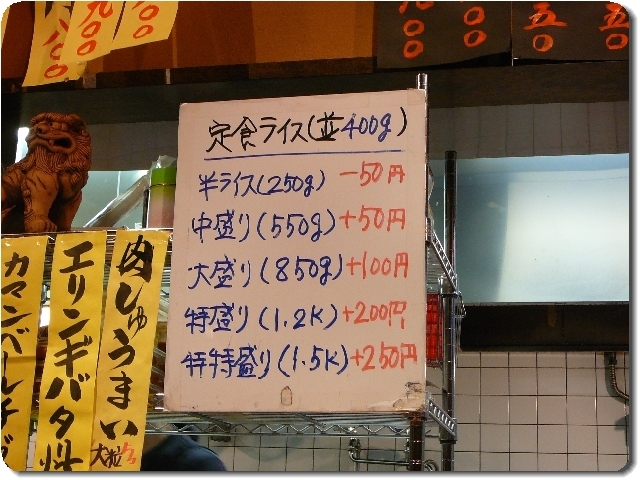 定食ライス(並400g)
半ライス(250g) -50円
中盛り(550g) +50円
大盛り(850g) +100円
特盛り(1.2K) +200円
特特盛り(1.5K) +250円
肉しゅうまい
大粒
エリンギバタ
カマンベール
八〇〇
九〇〇
〇〇
〇〇
〇〇
五〇
五〇